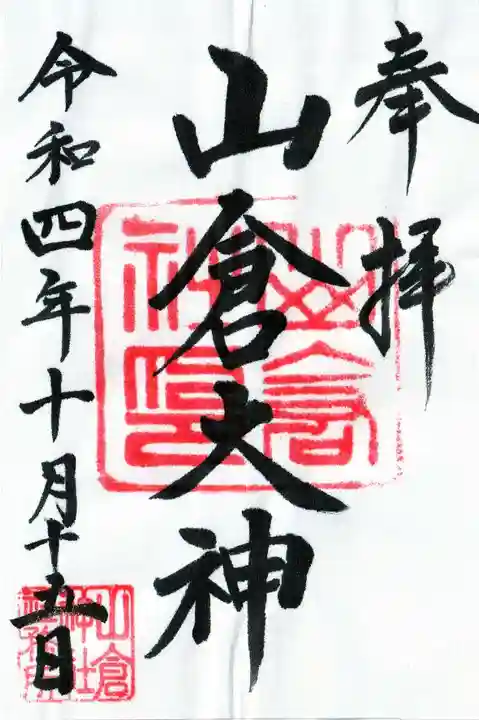 奉拝
山倉大神
令和四年十月十五日
山倉神社印
山倉神社社務所